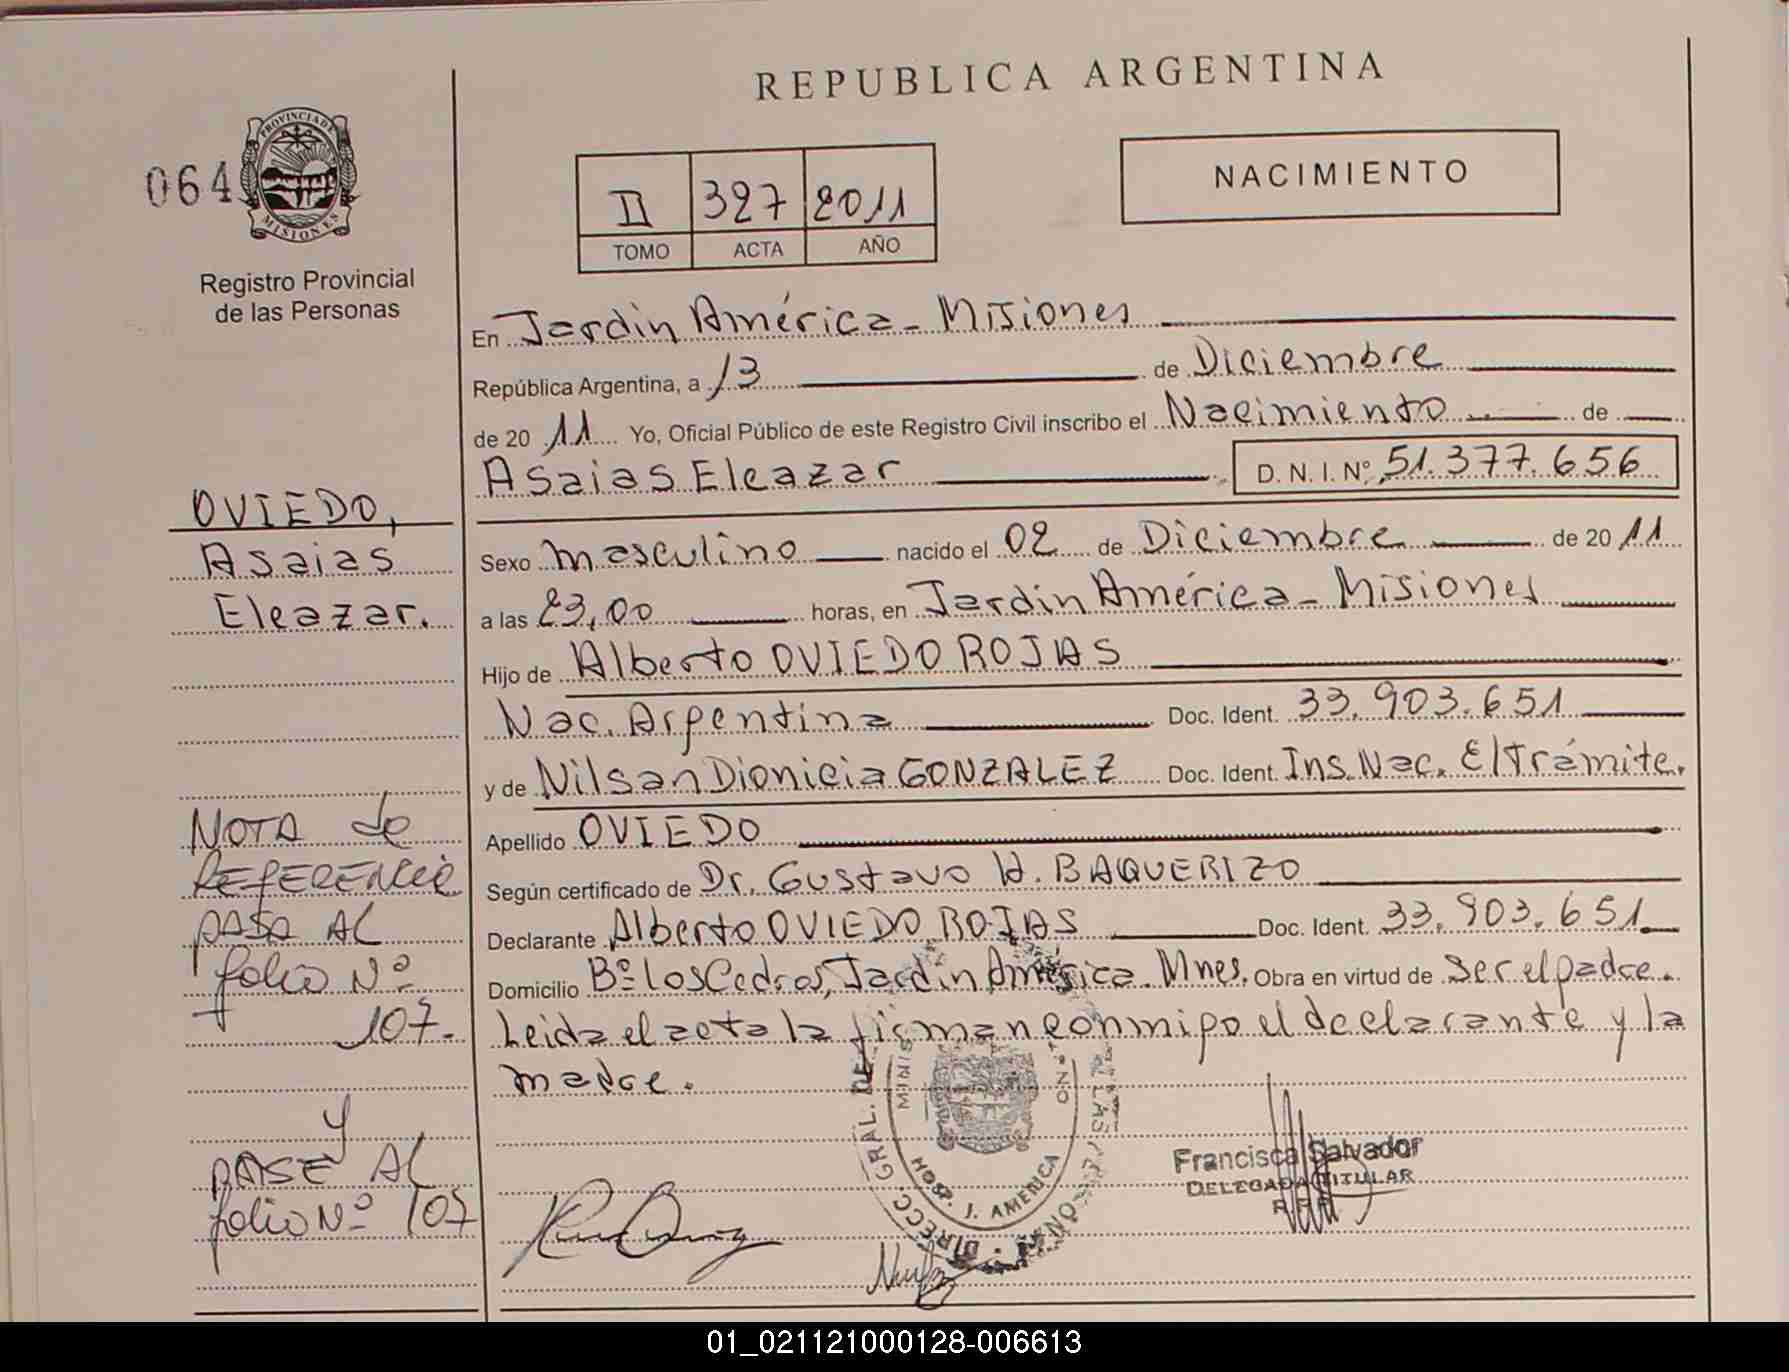 REPUBLICA ARGENTINA
064
PROVINCIA DE
MISIONES
Registro Provincial
de las Personas
II 327 2011
TOMO ACTA AÑO
NACIMIENTO
En Jardin América - Misiones
República Argentina, a 13 de Diciembre
de 20 11 Yo, Oficial Público de este Registro Civil inscribo el Nacimiento de
Asaias Eleazar D. N. I. Nº 51.377.656
Sexo masculino nacido el 02 de Diciembre de 20 11
a las 23,00 horas, en Jardin América - Misiones
Hijo de Alberto OVIEDO ROJAS
Nac. Argentina Doc. Ident. 33.903.651
y de Nilsan Dionicia GONZALEZ Doc. Ident. Ins. Nac. E/Trámite.
Apellido OVIEDO
Según certificado de Dr. Gustavo H. BAQUERIZO
Declarante Alberto OVIEDO ROJAS Doc. Ident. 33.903.651
Domicilio Bº Los Cedros, Jardin América. Mnes. Obra en virtud de ser el padre.
Leida el acta la firman conmigo el declarante y la
madre.
OVIEDO,
Asaias
Eleazar.
NOTA de
REFERENCIA
PASA AL
folio Nº
107.
y
PASE AL
folio Nº 107
DIRECC. GRAL. DE
MINIS
J. AMERICA
Francisca Salvador
DELEGADA TITULAR
R.P.P.
01_021121000128-006613